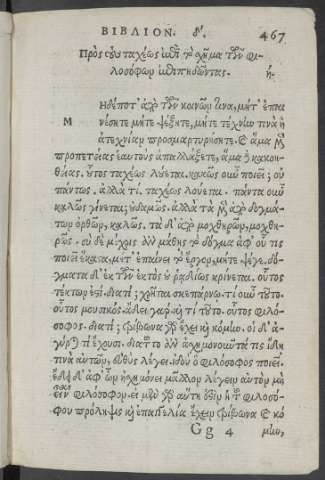 ΒΙΒΛΙΟΝ. δ'. 467
Πρὸς τοὺς ταχέως ἐπὶ τὸ σχῆμα τῶν φι-
λοσόφων ἐπιπηδῶντας. ή.
Μ Ηδέποτ' ἀπὸ τῶν κοινῶν τινα, μήτ' ἐπαι
νέσητε μήτε ψέξητε, μήτε τέχνην τινὰ ἢ
ἀτεχνίαν προσμαρτυρήσητε. καὶ ἅμα μὲν
προπετείας ἑαυτοὺς ἀπαλλάξετε, ἅμα δὲ κακοη-
θείας. οὗτος ταχέως λύεται. κακῶς οὖν ποιεῖ; οὐ
πάντως. ἀλλὰ τί; ταχέως λούεται. πάντα οὖν
καλῶς γίνεται; οὐδαμῶς. ἀλλὰ τὰ μὲν ἀπὸ δογμά-
των ὀρθῶν, καλῶς. τὰ δ' ἀπὸ μοχθηρῶν, μοχθη-
ρῶς. σὺ δὲ μέχρις ἂν μάθῃς τὸ δόγμα ἀφ' οὗ τις
ποιεῖ ἕκαστα, μήτ' ἐπαίνει τὸ ἔργον, μήτε ψέγε. δό-
γματα δ' ἐκ τῶν ἐκτὸς οὐ ῥᾳδίως κρίνεται. οὗτος
τέκτων ἐστί. διατί; χρῆται σκεπάρνῳ. τί οὖν τοῦτο.
οὗτος μουσικός. ᾄδει γάρ. καὶ τί τοῦτο. οὗτος φιλό-
σοφος. διατί; τρίβωνα γὰρ ἔχει καὶ κόμην. οἱ δ' ἀ-
γύρται τί ἔχουσι. διὰ τοῦτο ἂν ἀσχημονοῦντά τις ἴδῃ
τινὰ αὐτῶν, εὐθὺς λέγει. ἰδοὺ ὁ φιλόσοφος ποιεῖ.
ἔδει δ' ἀφ' ὧν ἠσχημόνει μᾶλλον λέγειν αὐτὸν μὴ
εἶναι φιλόσοφον. εἰ μὲν γὰρ αὕτη ἐστὶν ἡ τοῦ φιλοσό-
φου πρόληψις καὶ ἐπαγγελία ἔχειν τρίβωνα καὶ κό
Gg 4 μην,